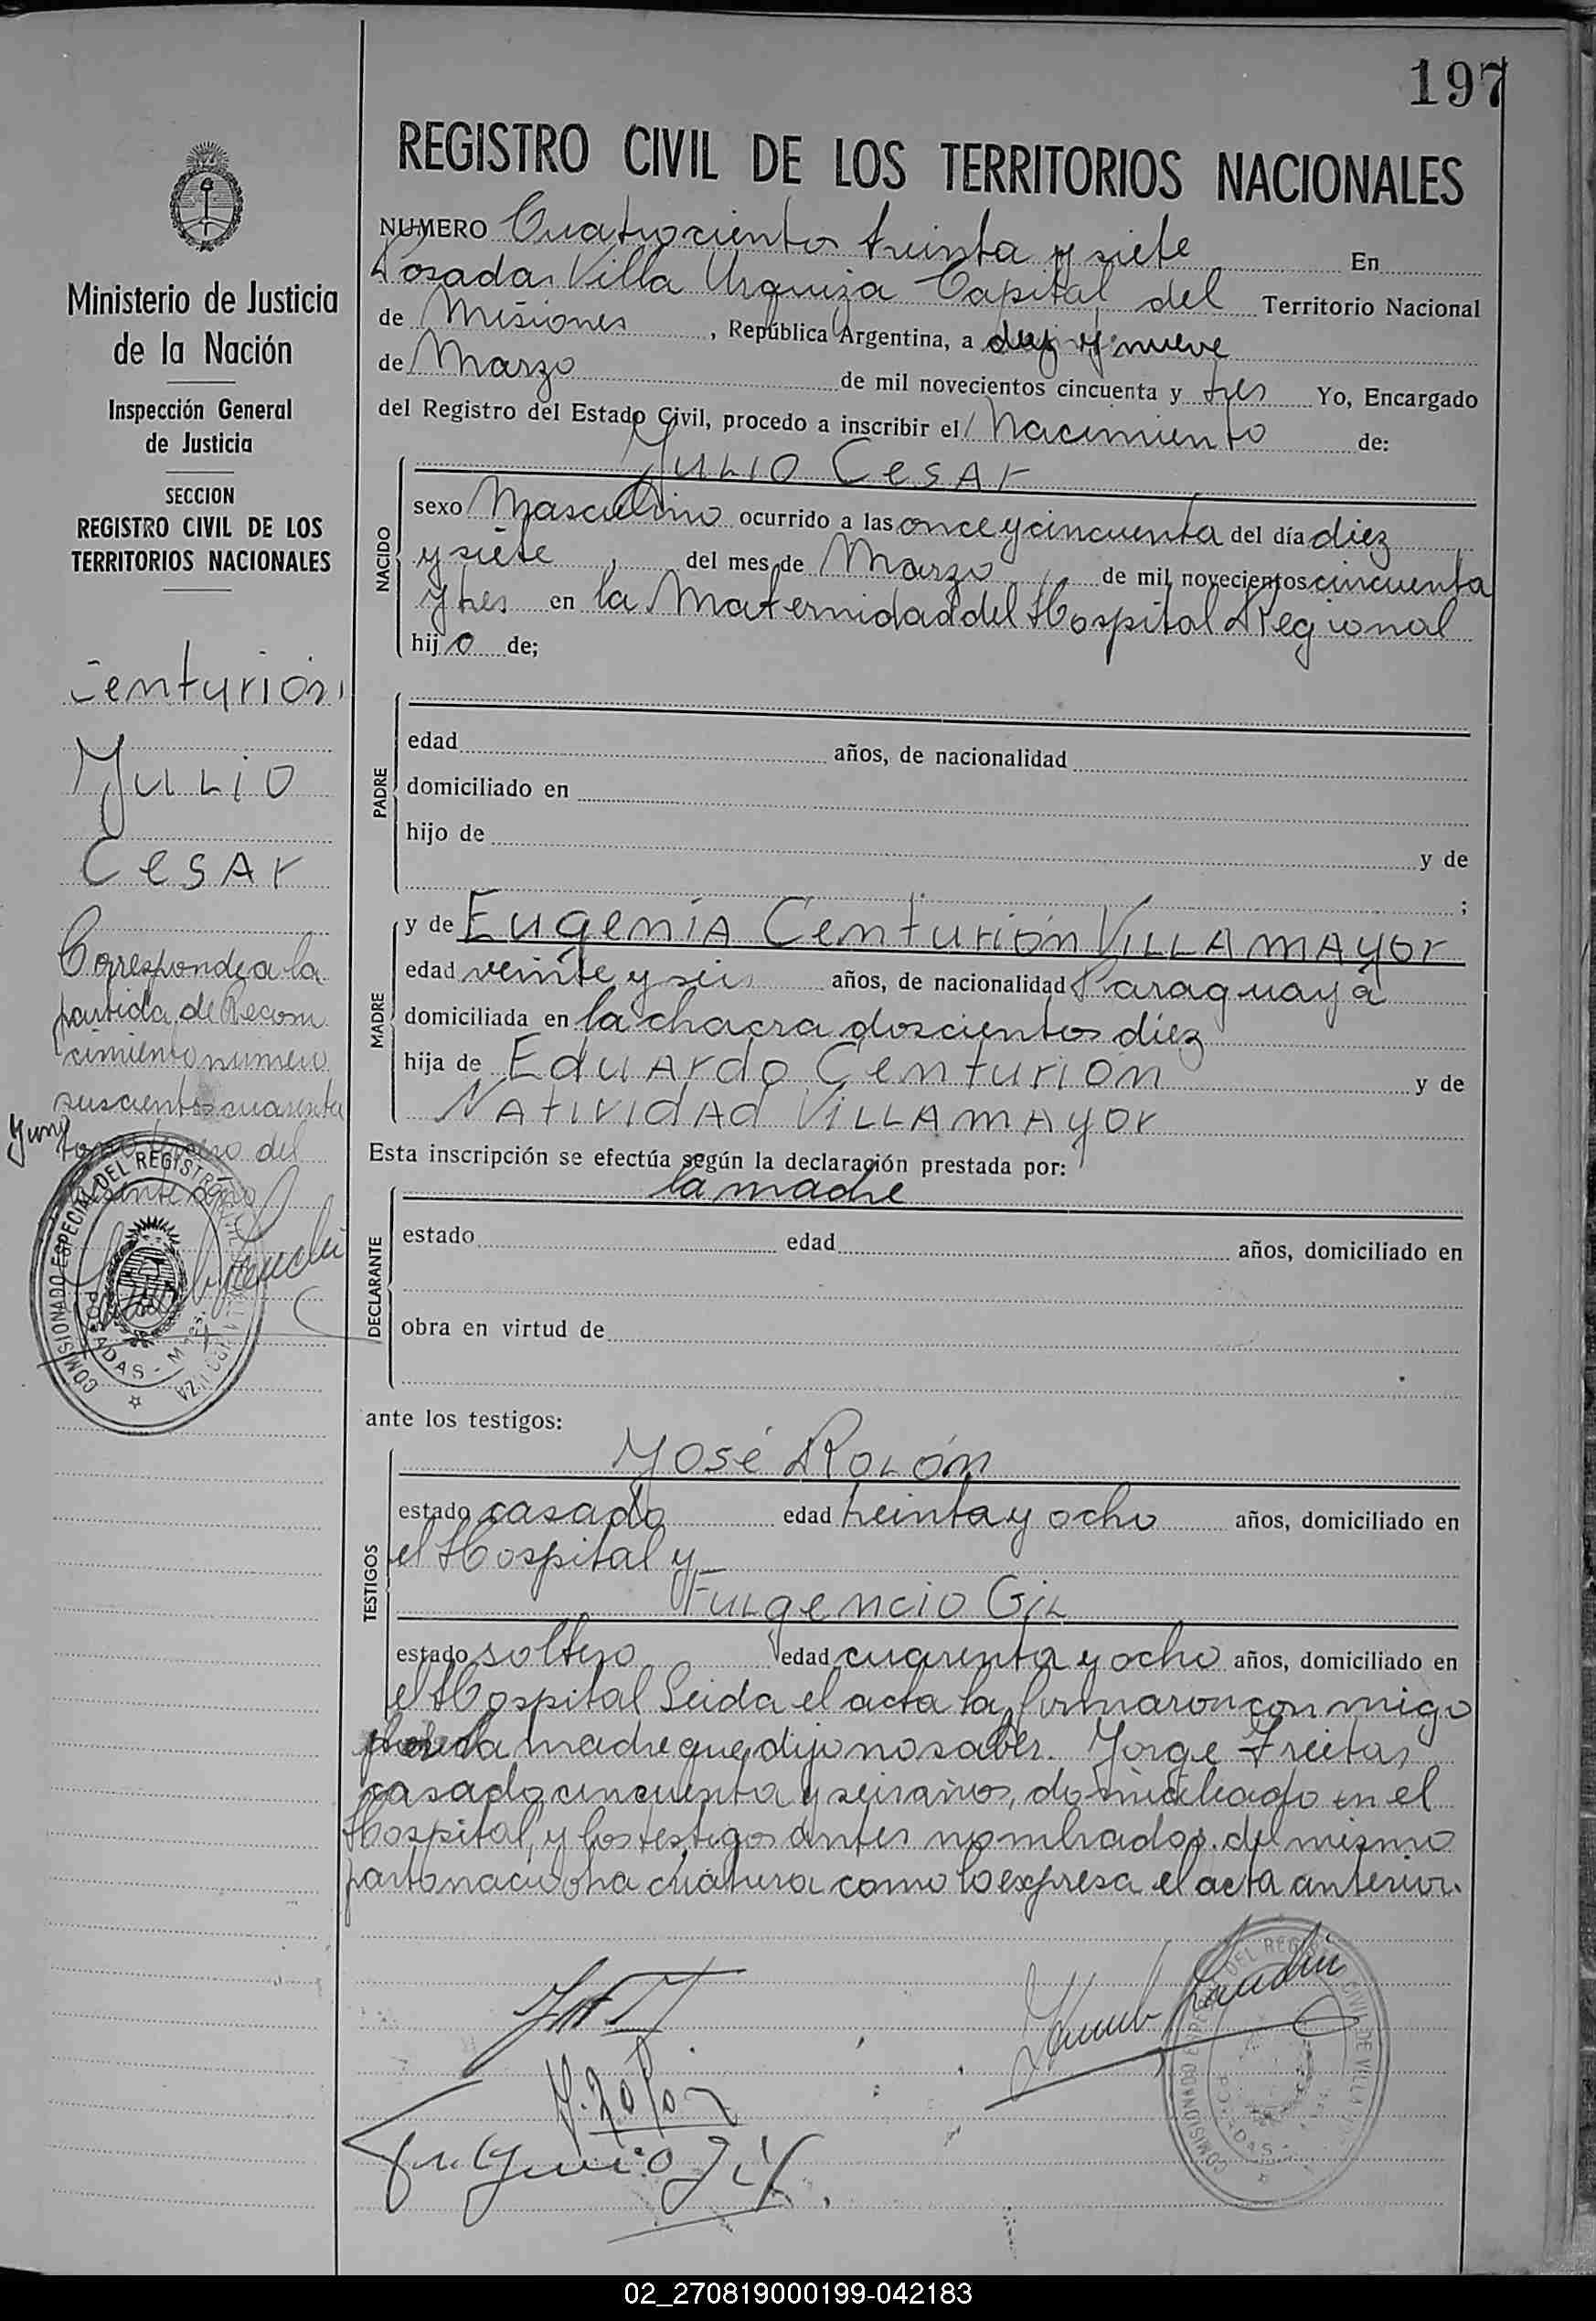 197
REGISTRO CIVIL DE LOS TERRITORIOS NACIONALES
Ministerio de Justicia
de la Nación
Inspección General
de Justicia
SECCION
REGISTRO CIVIL DE LOS
TERRITORIOS NACIONALES
Centurión,
JULIO
CesAr
Corresponde a la
partida de Recono
cimiento numero
seiscientos cuarenta
tomo del
COMISIONADO ESPECIAL DEL REGISTRO CIVIL DE VILLA URQUIZA
POSADAS - Mnes.
NUMERO Cuatrocientos treinta y siete En
Posadas Villa Urquiza Capital del Territorio Nacional
de Misiones, República Argentina, a diez y nueve
de Marzo de mil novecientos cincuenta y tres Yo, Encargado
del Registro del Estado Civil, procedo a inscribir el Nacimiento de:
JULIO CesAr
NACIDO
sexo Masculino ocurrido a las once y cincuenta del día diez
y siete, del mes de Marzo de mil novecientos cincuenta
y tres en la Maternidad del Hospital Regional
hijo de;
PADRE
edad años, de nacionalidad
domiciliado en
hijo de y de
;
MADRE
y de EugeniA Centurión VILLAmAyor
edad veinte y seis años, de nacionalidad Paraguaya
domiciliada en la chacra doscientos diez
hija de EduArdo Centurión y de
NAtividAd VILLAmAyor
Esta inscripción se efectúa según la declaración prestada por:
la madre
DECLARANTE
estado edad años, domiciliado en
obra en virtud de
ante los testigos:
José ROLón
TESTIGOS
estado casado edad treinta y ocho años, domiciliado en
el Hospital y
FuLgencio GiL
estado soltero edad cuarenta y ocho años, domiciliado en
el Hospital Leida el acta la firmaron con migo
por la madre que dijo no saber. Jorge Freitas,
casado, cincuenta y seis años, domiciliado en el
Hospital, y los testigos antes nombrados. del mismo
parto nació otra criatura como lo expresa el acta anterior.
J. Rolon
Fulgencio Gil
COMISIONADO ESPECIAL DEL REGISTRO CIVIL DE VILLA
POSADAS
02_270819000199-042183